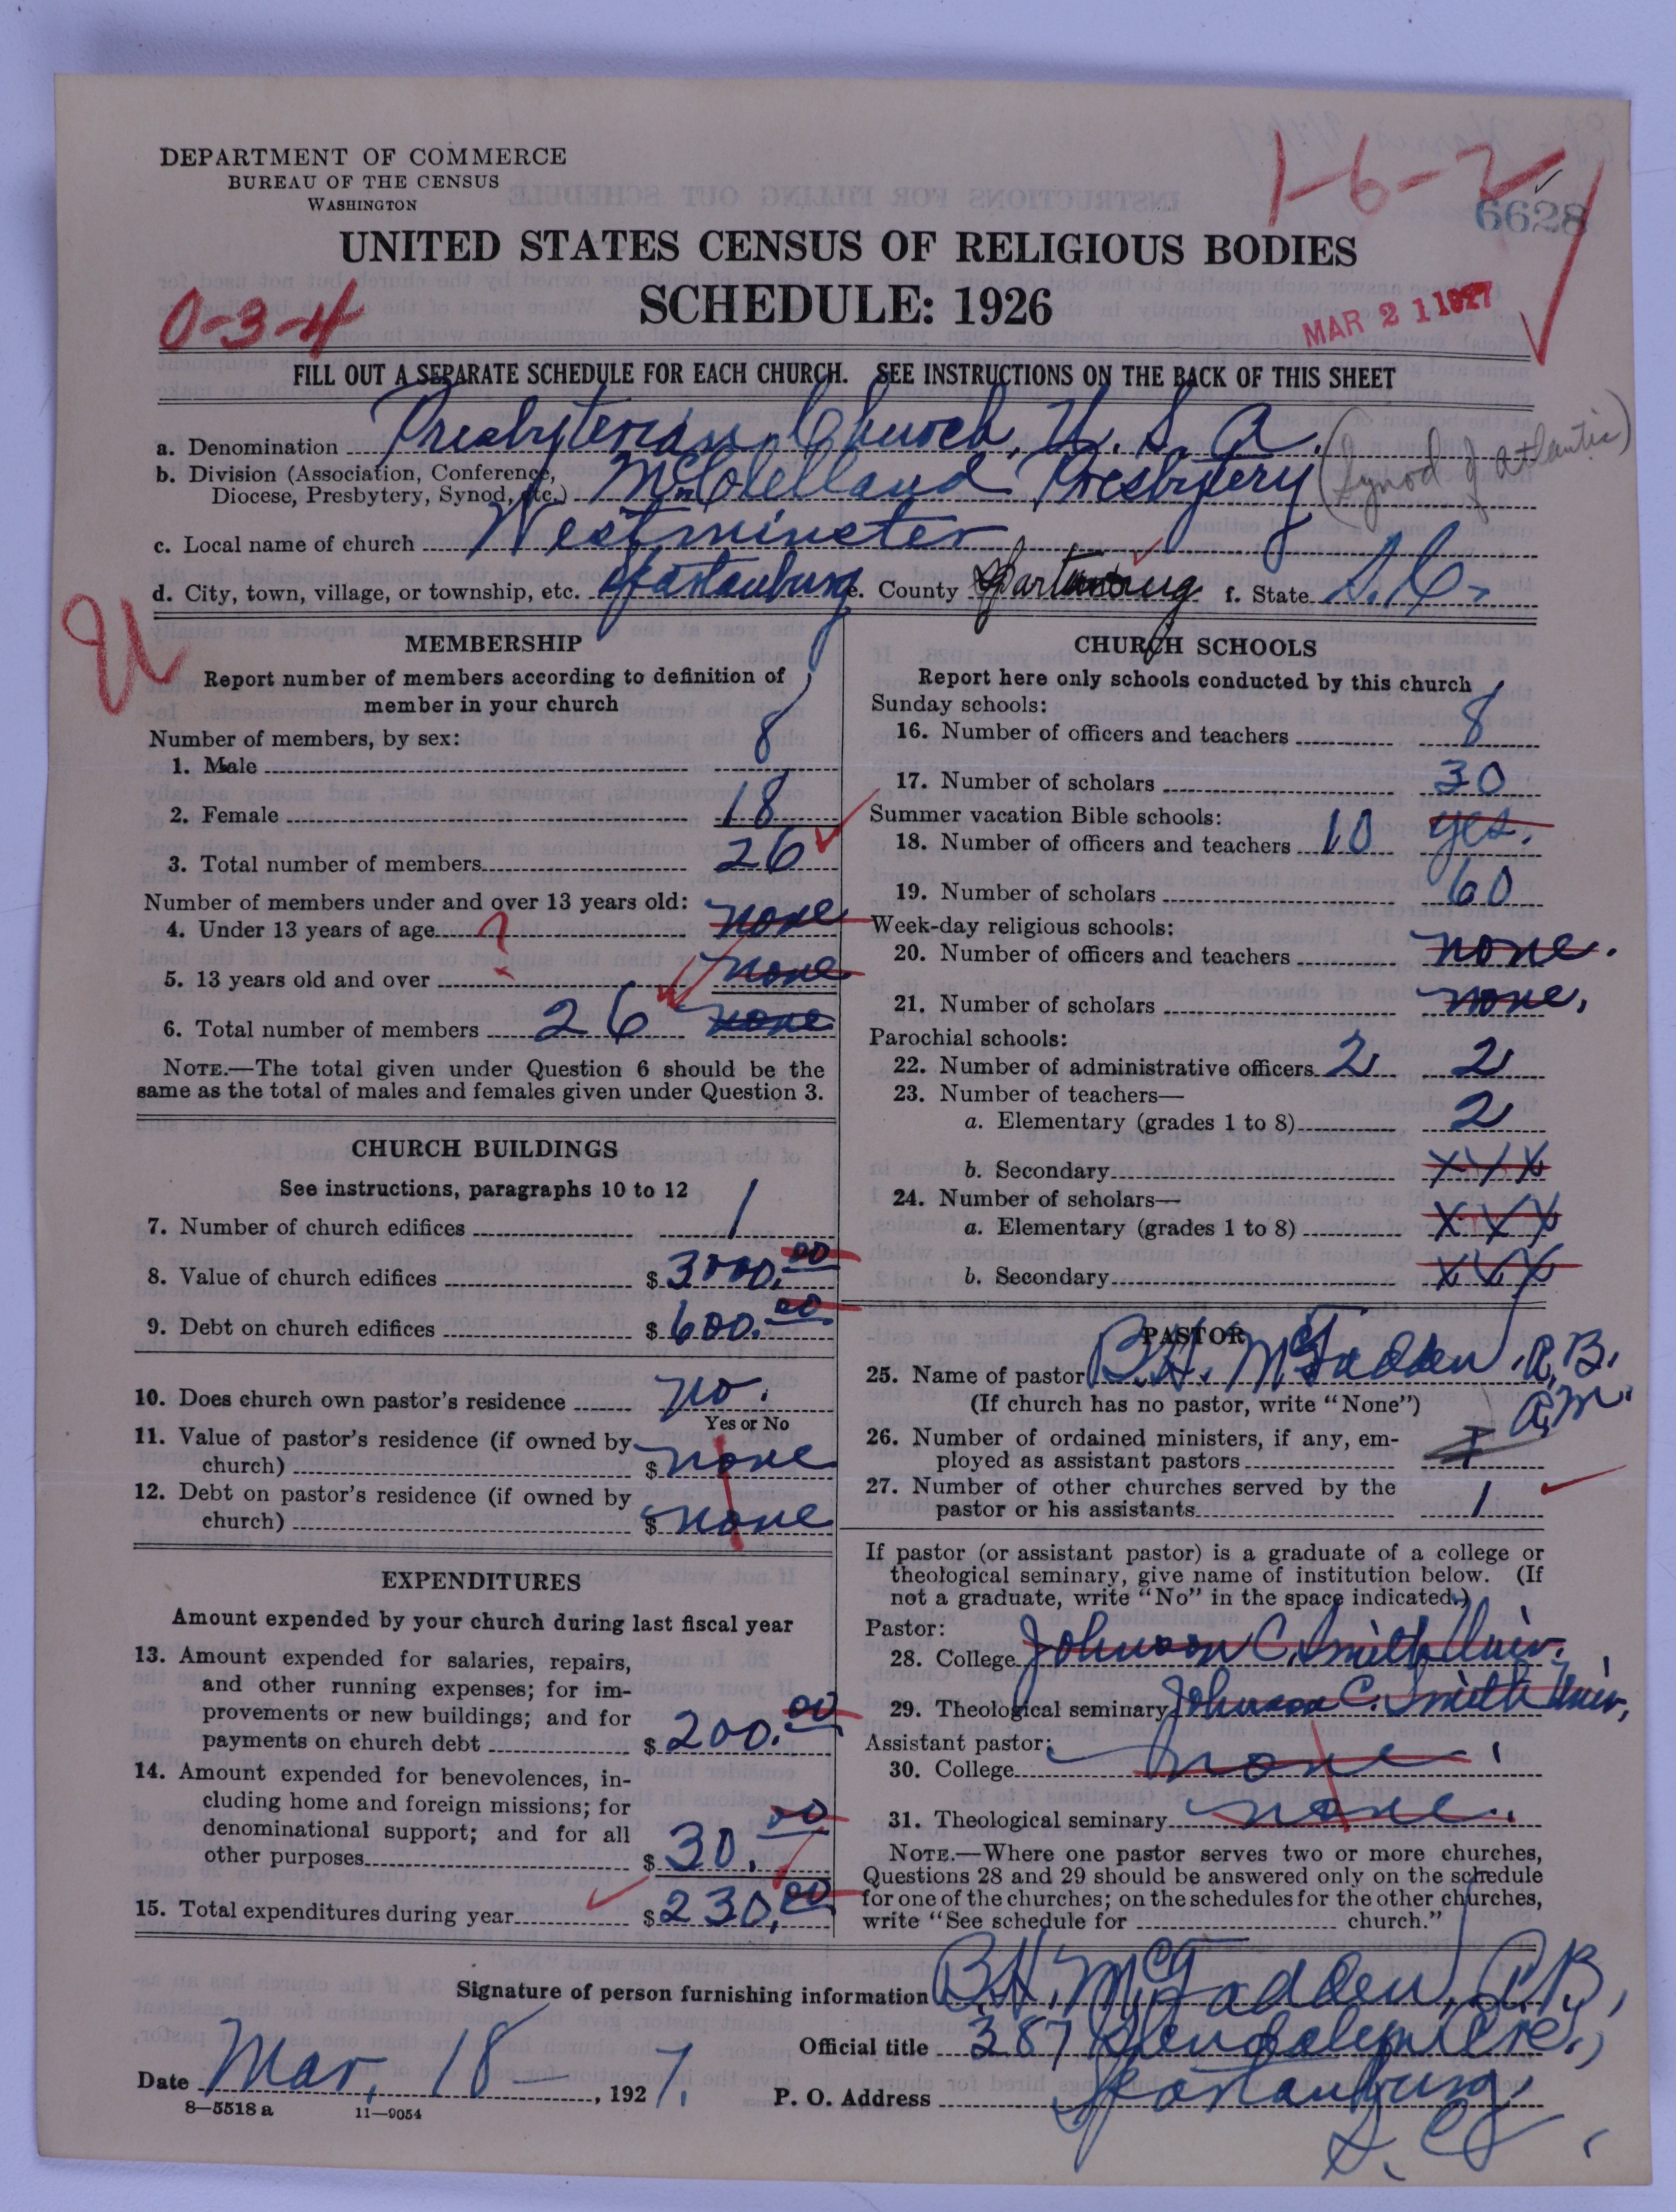 DEPARTMENT OF COMMERCE
BUREAU OF THE CENSUS
WASHINGTON
1-6-2
6628
UNITED STATES CENSUS OF RELIGIOUS BODIES
SCHEDULE: 1926
0-3-4
MAR 21 1927
FILL OUT A SEPARATE SCHEDULE FOR EACH CHURCH. SEE INSTRUCTIONS ON THE BACK OF THIS SHEET
a. Denomination Presbyterian Church, U. S. A.
b. Division (Association, Conference,
Diocese, Presbytery, Synod, etc.) McClelland Presbytery (Synod of Atlantic)
c. Local name of church Westminster
d. City, town, village, or township, etc. Spartanburg e. County Spartanburg f. State S. C.
U
MEMBERSHIP
Report number of members according to definition of
member in your church
Number of members, by sex:
1. Male 8
2. Female 18
3. Total number of members 26
Number of members under and over 13 years old:
4. Under 13 years of age ? none
5. 13 years old and over none
6. Total number of members 26 none
NOTE.—The total given under Question 6 should be the
same as the total of males and females given under Question 3.
CHURCH BUILDINGS
See instructions, paragraphs 10 to 12
7. Number of church edifices 1
8. Value of church edifices $ 3000.00
9. Debt on church edifices $ 600.00
10. Does church own pastor's residence no.
Yes or No
11. Value of pastor's residence (if owned by
church) $ none
12. Debt on pastor's residence (if owned by
church) $ none
EXPENDITURES
Amount expended by your church during last fiscal year
13. Amount expended for salaries, repairs,
and other running expenses; for im-
provements or new buildings; and for
payments on church debt $ 200.00
14. Amount expended for benevolences, in-
cluding home and foreign missions; for
denominational support; and for all
other purposes $ 30.00
15. Total expenditures during year $ 230.00
CHURCH SCHOOLS
Report here only schools conducted by this church
Sunday schools:
16. Number of officers and teachers 8
17. Number of scholars 30
Summer vacation Bible schools:
18. Number of officers and teachers 10 yes.
19. Number of scholars 60
Week-day religious schools:
20. Number of officers and teachers none.
21. Number of scholars none.
Parochial schools:
22. Number of administrative officers 2 2
23. Number of teachers—
a. Elementary (grades 1 to 8) 2
b. Secondary XXX
24. Number of scholars—
a. Elementary (grades 1 to 8) XXX
b. Secondary XXX
PASTOR
25. Name of pastor B. H. McFadden, A.B.
A.M.
(If church has no pastor, write "None")
26. Number of ordained ministers, if any, em-
ployed as assistant pastors
27. Number of other churches served by the
pastor or his assistants 1
If pastor (or assistant pastor) is a graduate of a college or
theological seminary, give name of institution below. (If
not a graduate, write "No" in the space indicated.)
Pastor:
28. College Johnson C. Smith Univ.
29. Theological seminary Johnson C. Smith Univ.
Assistant pastor:
30. College none.
31. Theological seminary none.
NOTE.—Where one pastor serves two or more churches,
Questions 28 and 29 should be answered only on the schedule
for one of the churches; on the schedules for the other churches,
write "See schedule for church."
Signature of person furnishing information B. H. McFadden, A.B.,
Official title 387
Date Mar. 18 —, 1927.
P. O. Address Spartanburg,
S. C.
8—5518 a 11—9054